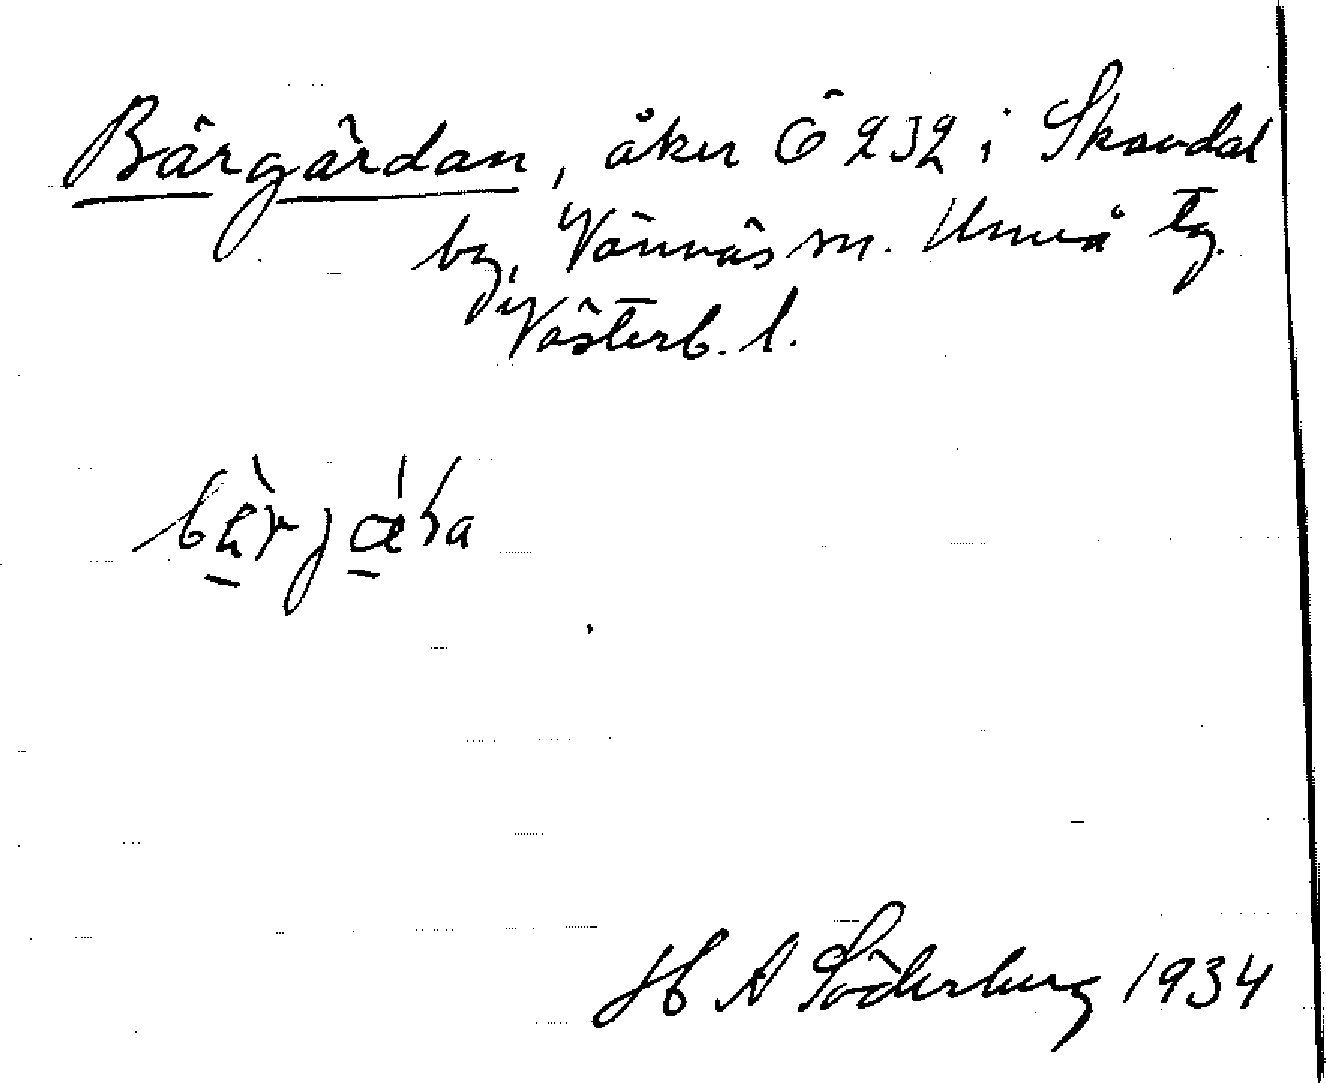 Bärgärdan, åker Ö 232 i Skavdal
by, Vännäs sn. Umeå tg.
Västerb. l.
H A Söderberg 1934